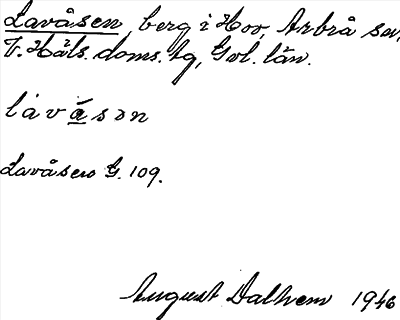 Lavåsen, berg i Hov, Arbrå sn,
V. Häls. doms. tg, Gvl. län.
lávȧsən
Lavåsen G. 109.
August Dalhem 1946